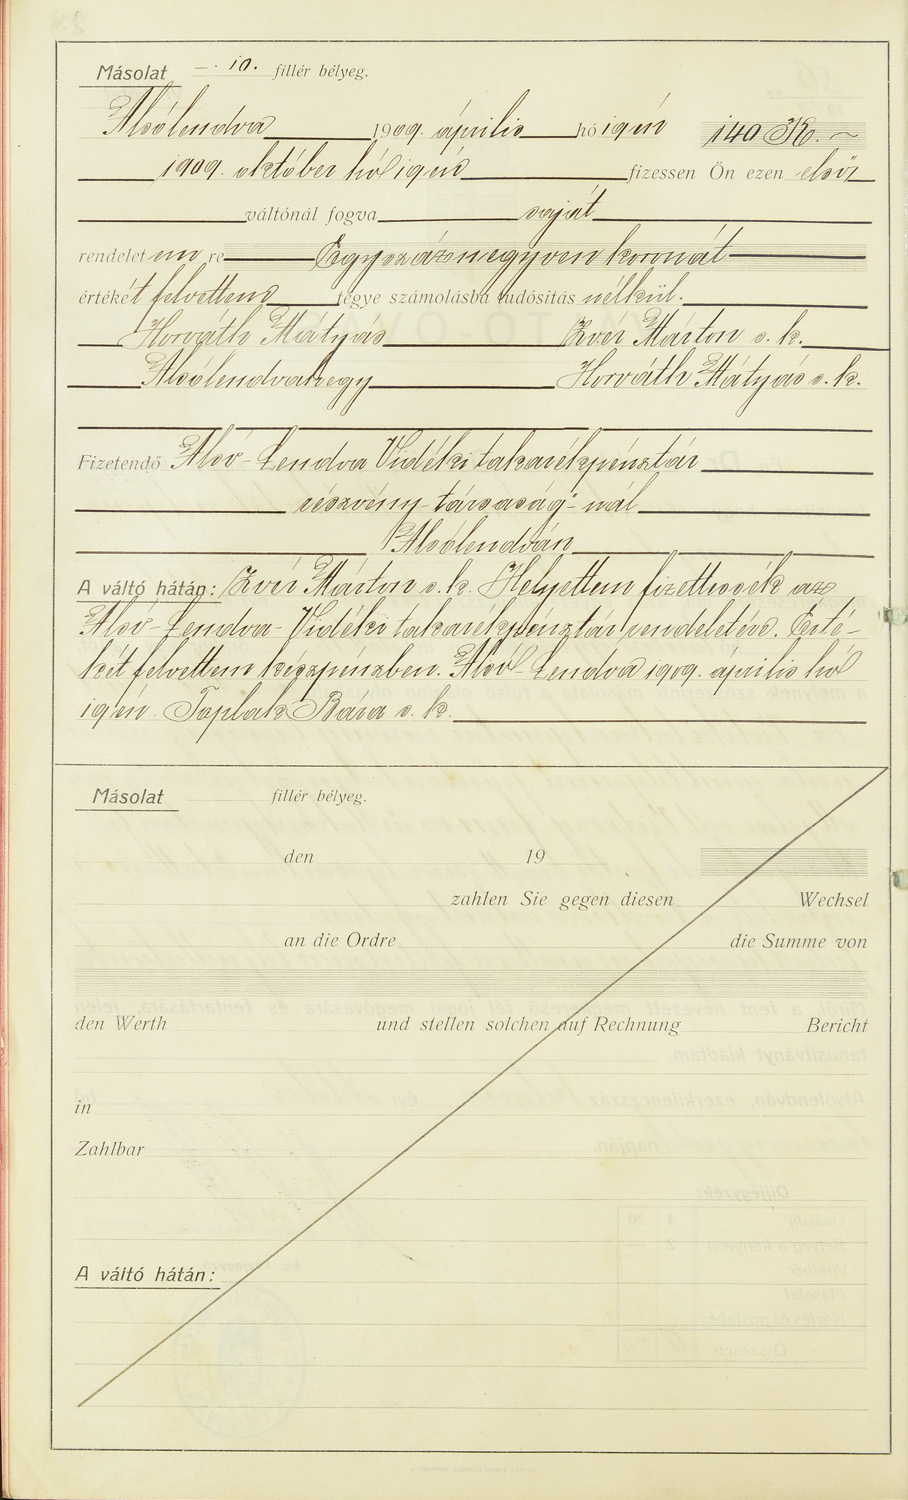 Másolat 10. fillér bélyeg.
Alsólendva 1909. április hó 19én 140 K.
1909. október hó 19én fizessen Ön ezen első
váltónál fogva saját
rendeletem re Egyszáznegyven koronát
értékét felvettem s tegye számolásba tudósítás nélkül.
Horváth Mátyás Zvér Márton s. k.
Alsólendvahegy Horváth Mátyás s. k.
Fizetendő Alsó-Lendva Vidéki takarékpénztár
részvény-társaság"-nál
Alsólendván
A váltó hátán: Zvér Márton s. k. Helyettem fizettessék az
Alsó-Lendva-Vidéki takarékpénztár rendeletére. Érté-
két felvettem készpénzben. Alsó-Lendva 1909. április hó
19én. Toplak Bára s. k.
Másolat fillér bélyeg.
den 19
zahlen Sie gegen diesen Wechsel
an die Ordre die Summe von
den Werth und stellen solchen auf Rechnung Bericht
in
Zahlbar
A váltó hátán: